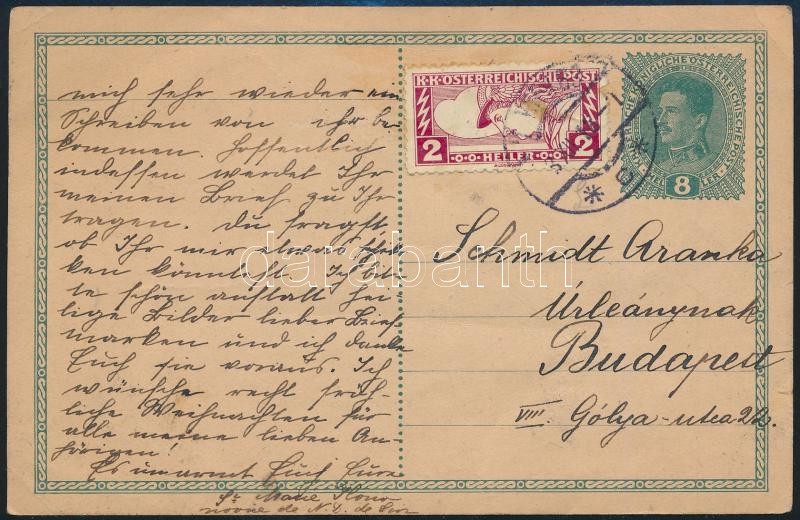 mich sehr wieder ein
Schreiben von ihr be-
kommen. Hoffentlich
indessen werdet Ihr
meinen Brief zu Ihr
tragen. Du fragst,
ob Ihr mir etwas schi-
ken könntest. Ich bit-
te schön anstatt hei-
lige Bilder lieber Brief-
marken und ich danke
Euch sie voraus. Ich
wünsche recht fröh-
liche Weihnachten für
alle meine lieben An-
hörigen!
Es umarmt Euch Eure
Sr. Marie
de N. D. de Sion
K·K·ÖSTERREICHISCHE POST
2 HELLER 2
KÖNIGLICHE ÖSTERREICHISCHE POST
8
Schmidt Aranka
Úrleánynak
Budapest
VIII. Gólya-utca
darabanth